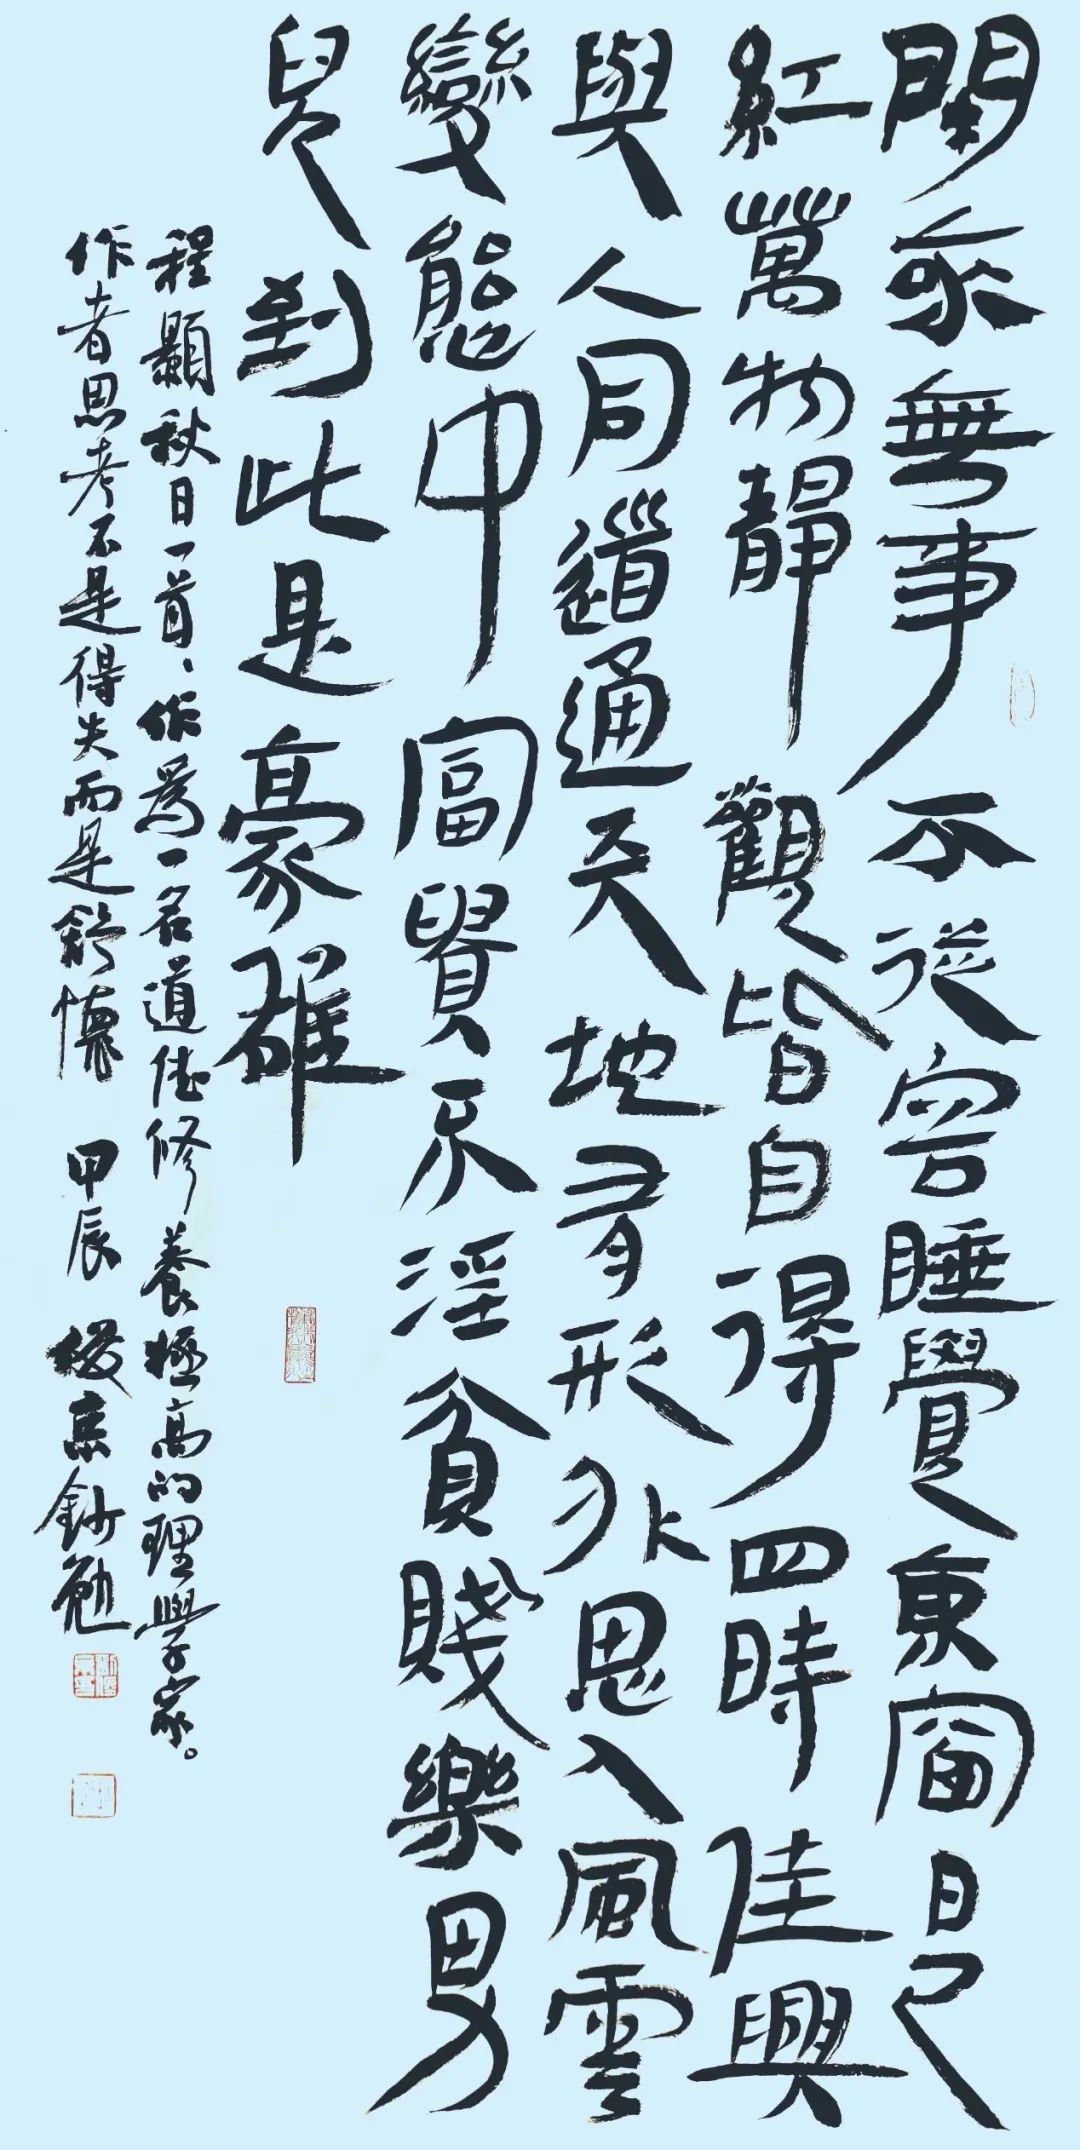 閑來無事不從容睡覺東窗日已
紅萬物靜觀皆自得四時佳興
與人同道通天地有形外思入風雲
變態中富貴不淫貧賤樂男
兒到此是豪雄
程顥秋日一首、作爲一名道德修養極高的理學家。
作者思考不是得失而是舒懷 甲辰 鈔勉